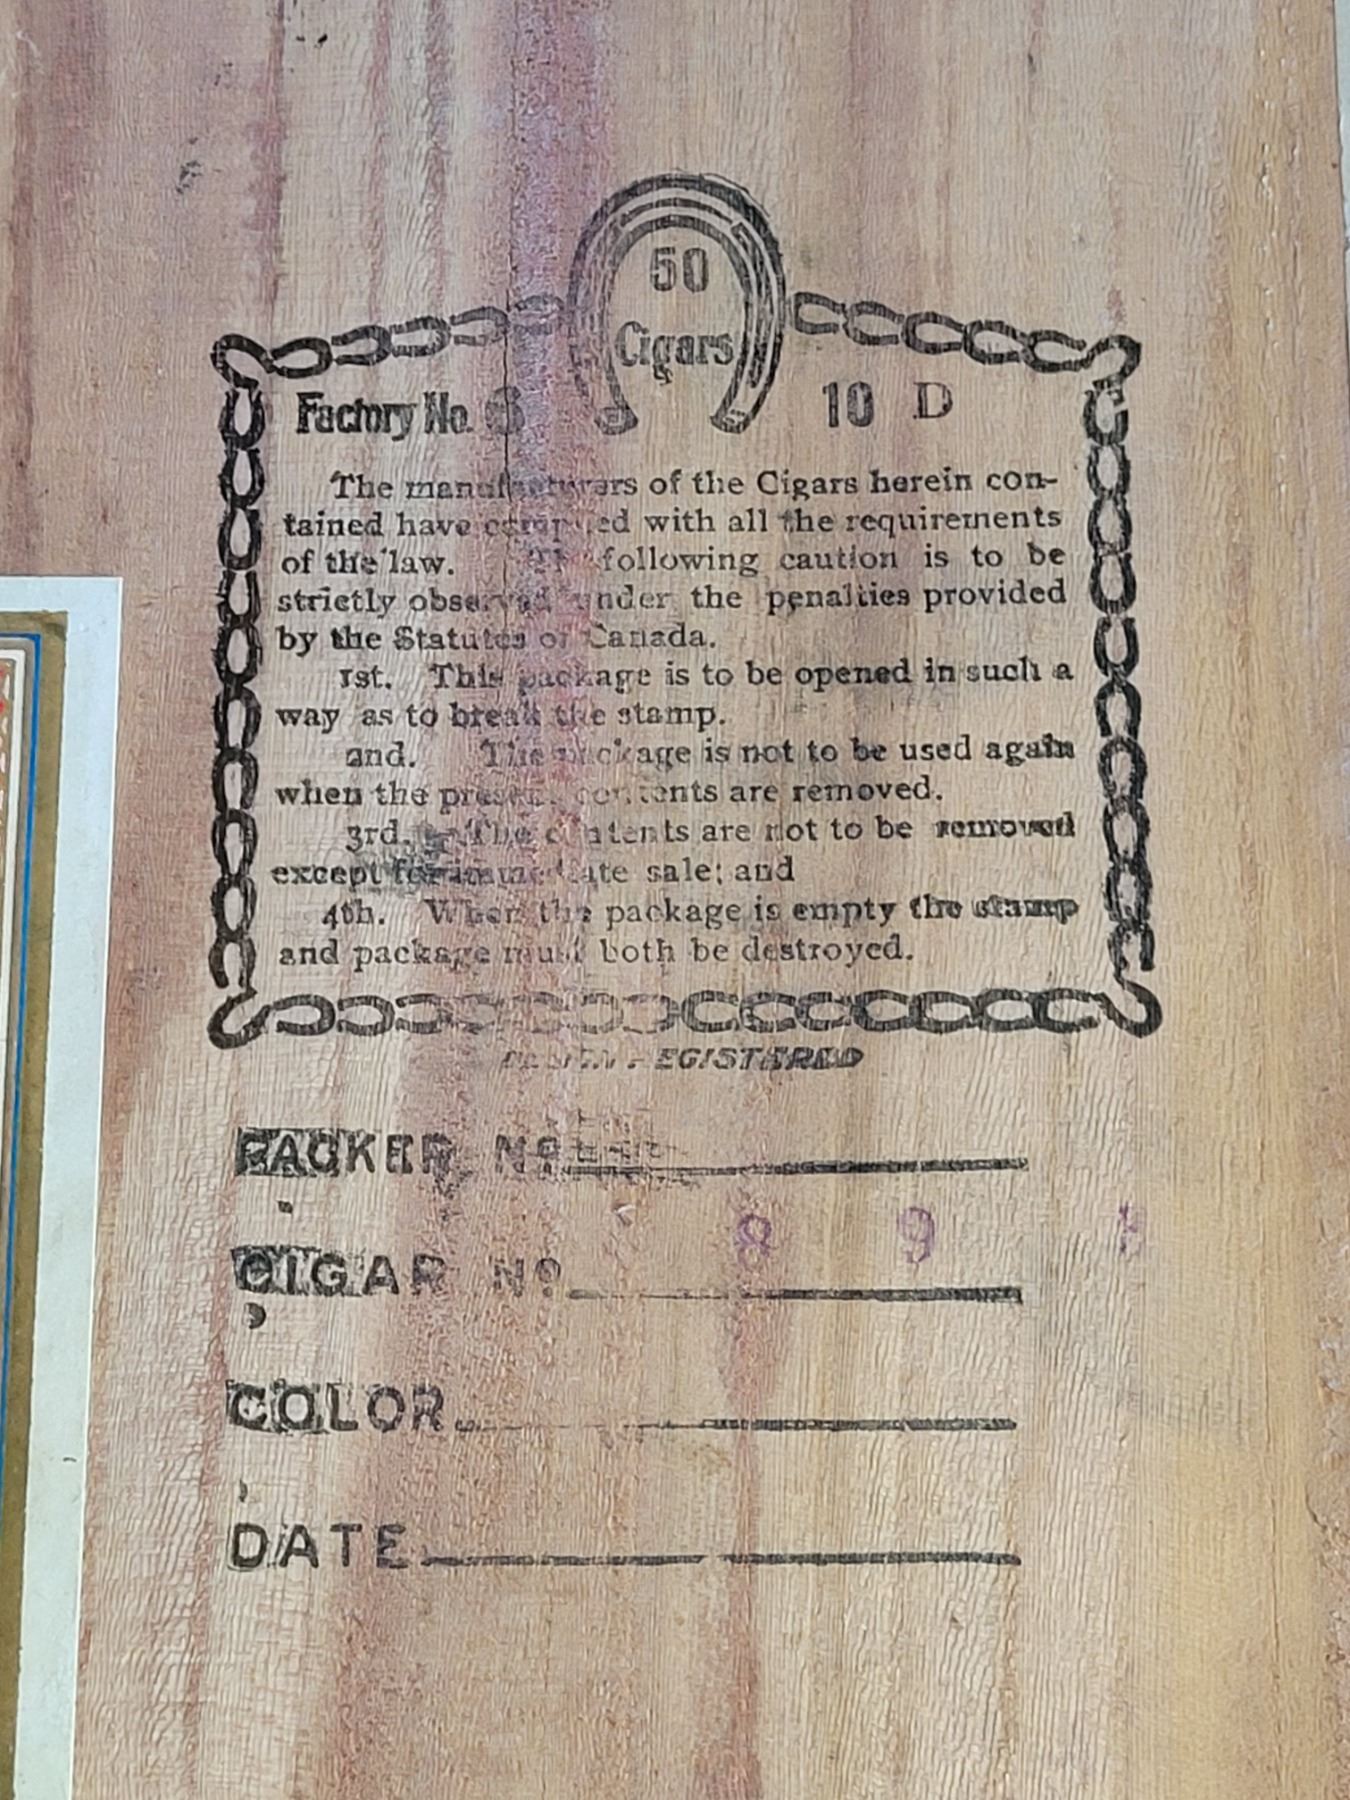 50
Cigars
Factory No. 10 D
The manufacturers of the Cigars herein con-
tained have complied with all the requirements
of the law. The following caution is to be
strictly observed under the penalties provided
by the Statutes of Canada.
1st. This package is to be opened in such a
way as to break the stamp.
2nd. The package is not to be used again
when the present contents are removed.
3rd. The contents are not to be removed
except for immediate sale; and
4th. When the package is empty the stamp
and package must both be destroyed.
DESIGN REGISTERED
PACKER Nº
8 9
CIGAR Nº
COLOR
DATE